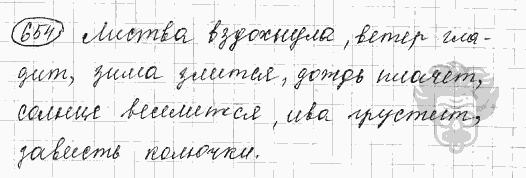 654 Листва вздохнула, ветер гла-
дит, зима злится, дождь плачет,
солнце веселится, ива грустит,
зависть колючки.